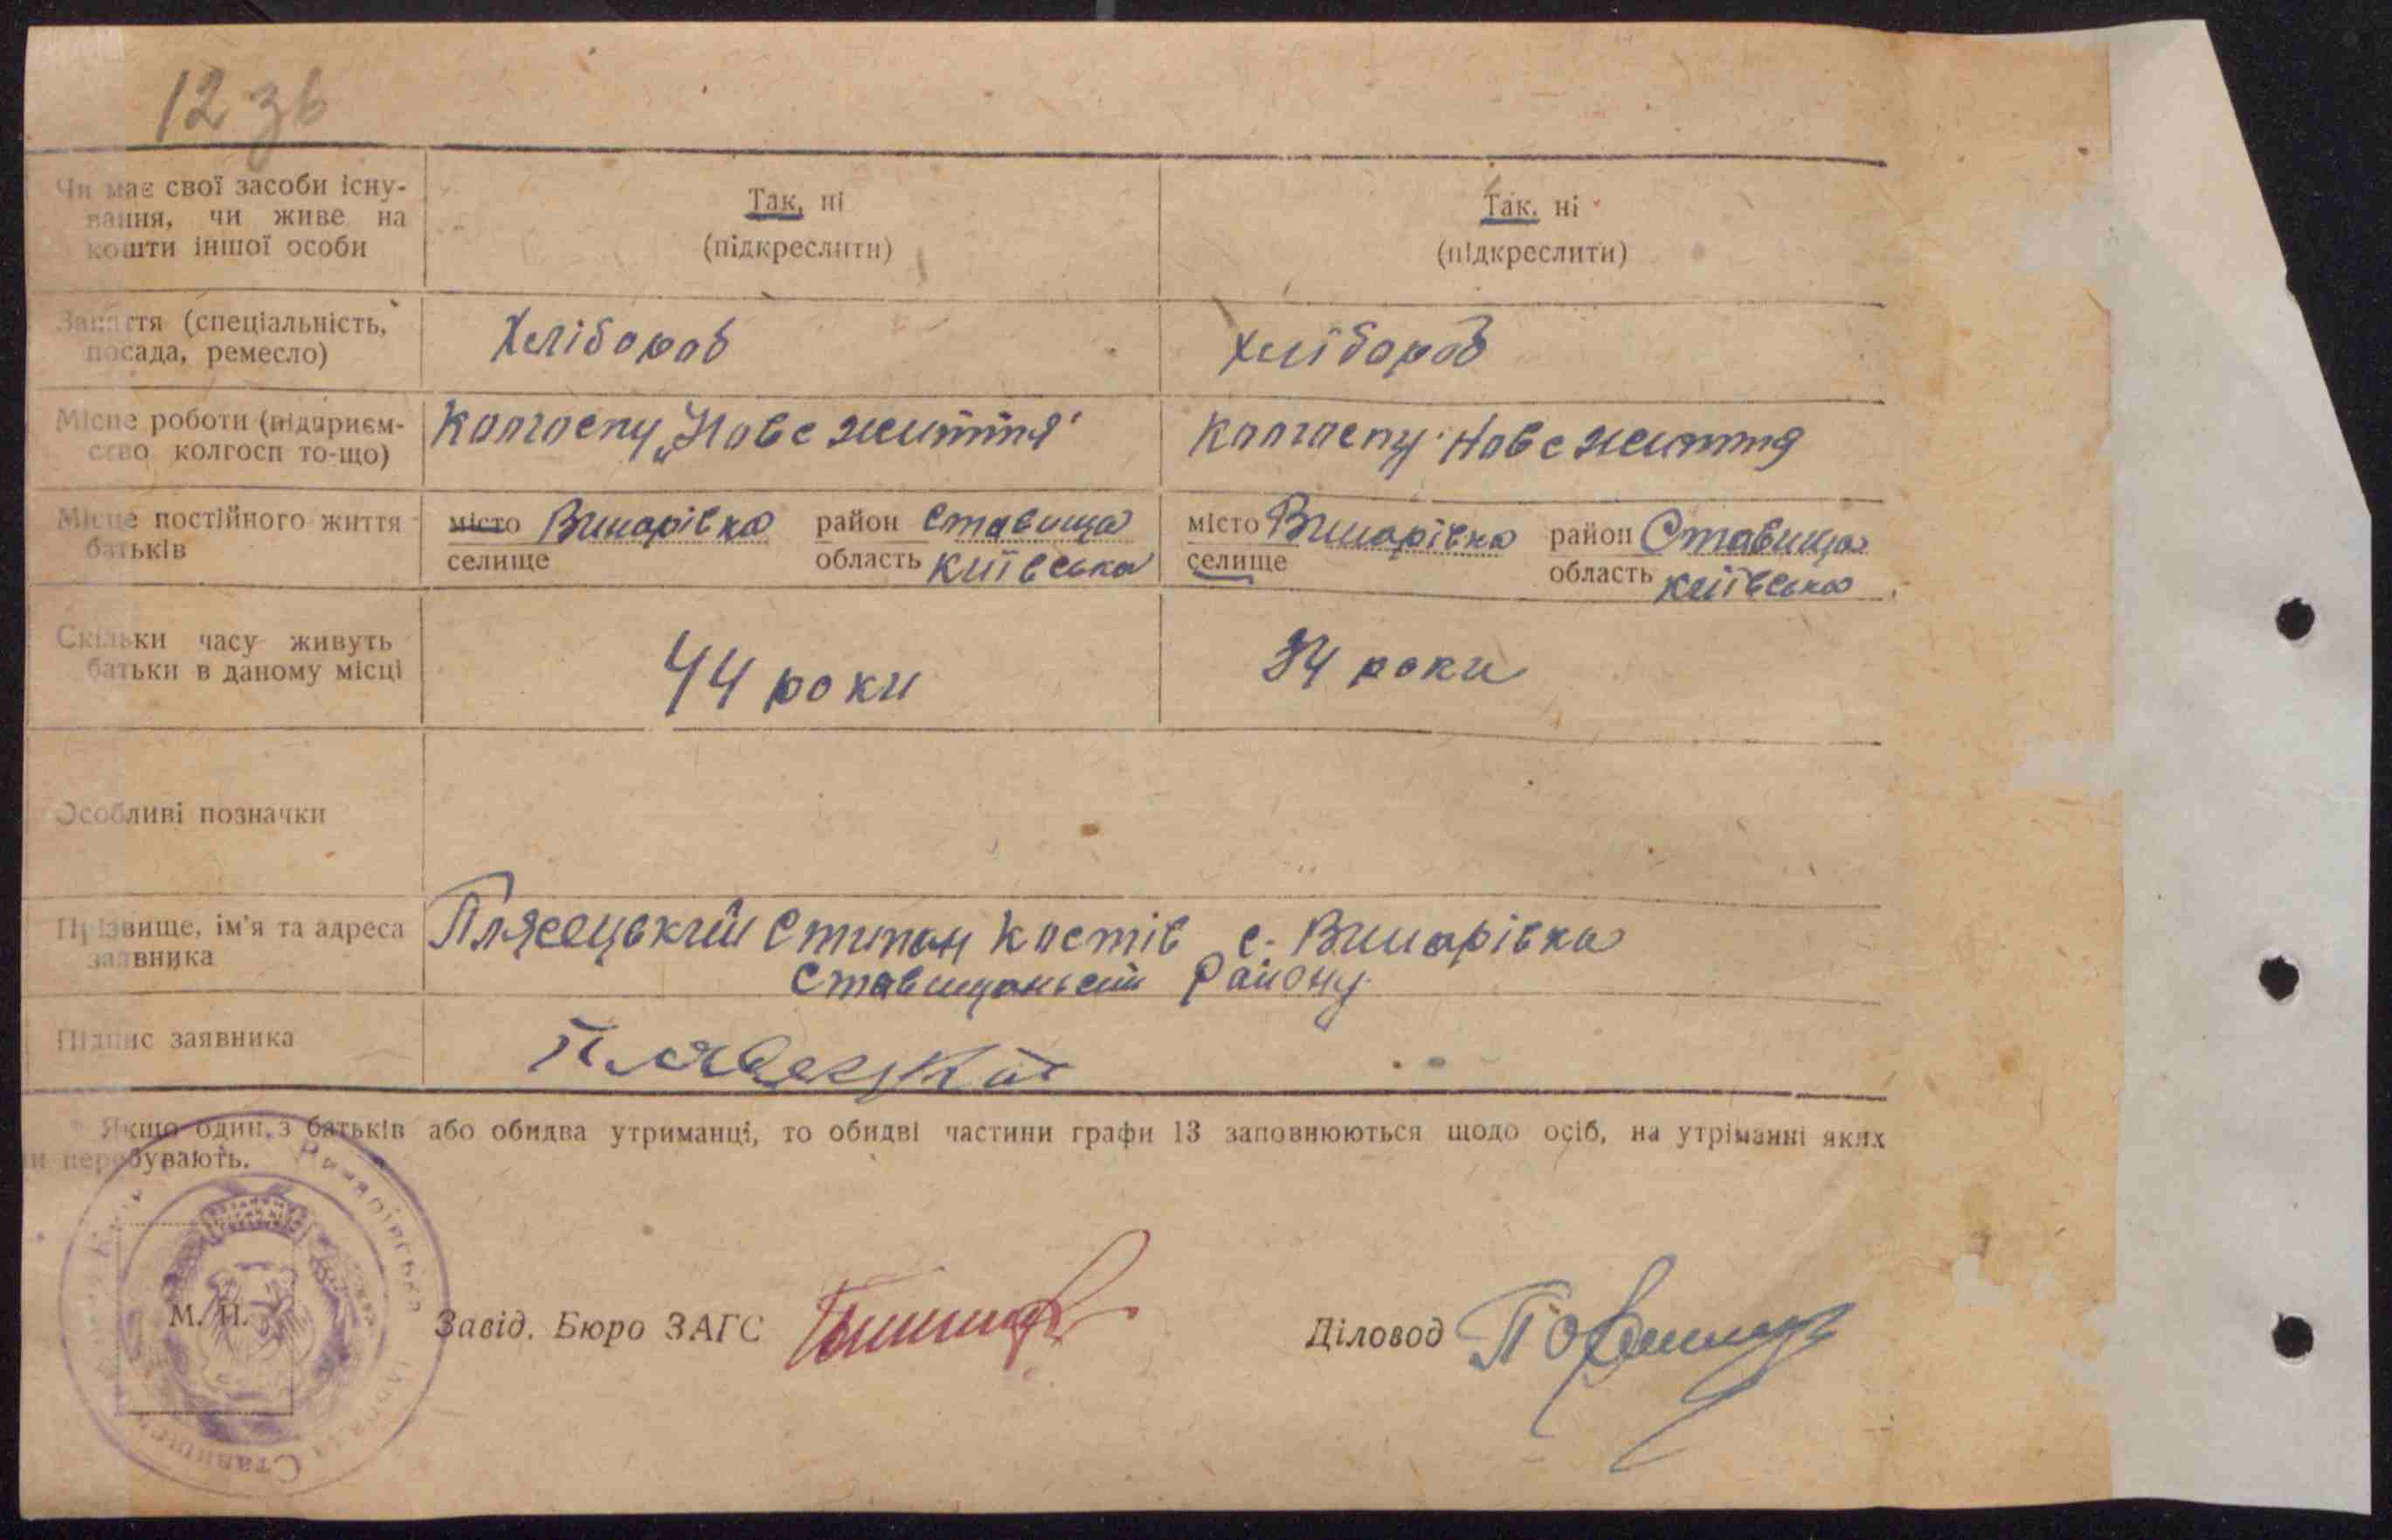 12 зв
Чи має свої засоби існу-
вання, чи живе на
кошти іншої особи
Так, ні
(підкреслити)
Так, ні
(підкреслити)
Заняття (спеціальність,
посада, ремесло)
Хлібороб
Хлібороб
Місце роботи (підприєм-
ство колгосп то-що)
Колгоспу „Нове життя"
Колгоспу "Нове життя
Місце постійного життя
батьків
місто Винарівка район Ставища
селище область Київська
місто Винарівка район Ставища
селище область Київська
Скільки часу живуть
батьки в даному місці
44 роки
34 роки
Особливі позначки
Прізвище, ім'я та адреса
заявника
Плясецький Стипан Костів с. Винарівка
Ставищанський Району
Підпис заявника
Плясецький
* Якщо один з батьків або обидва утриманці, то обидві частини графи 13 заповнюються щодо осіб, на утріманні яких
перебувають.
М. П.
Завід. Бюро ЗАГС
Діловод